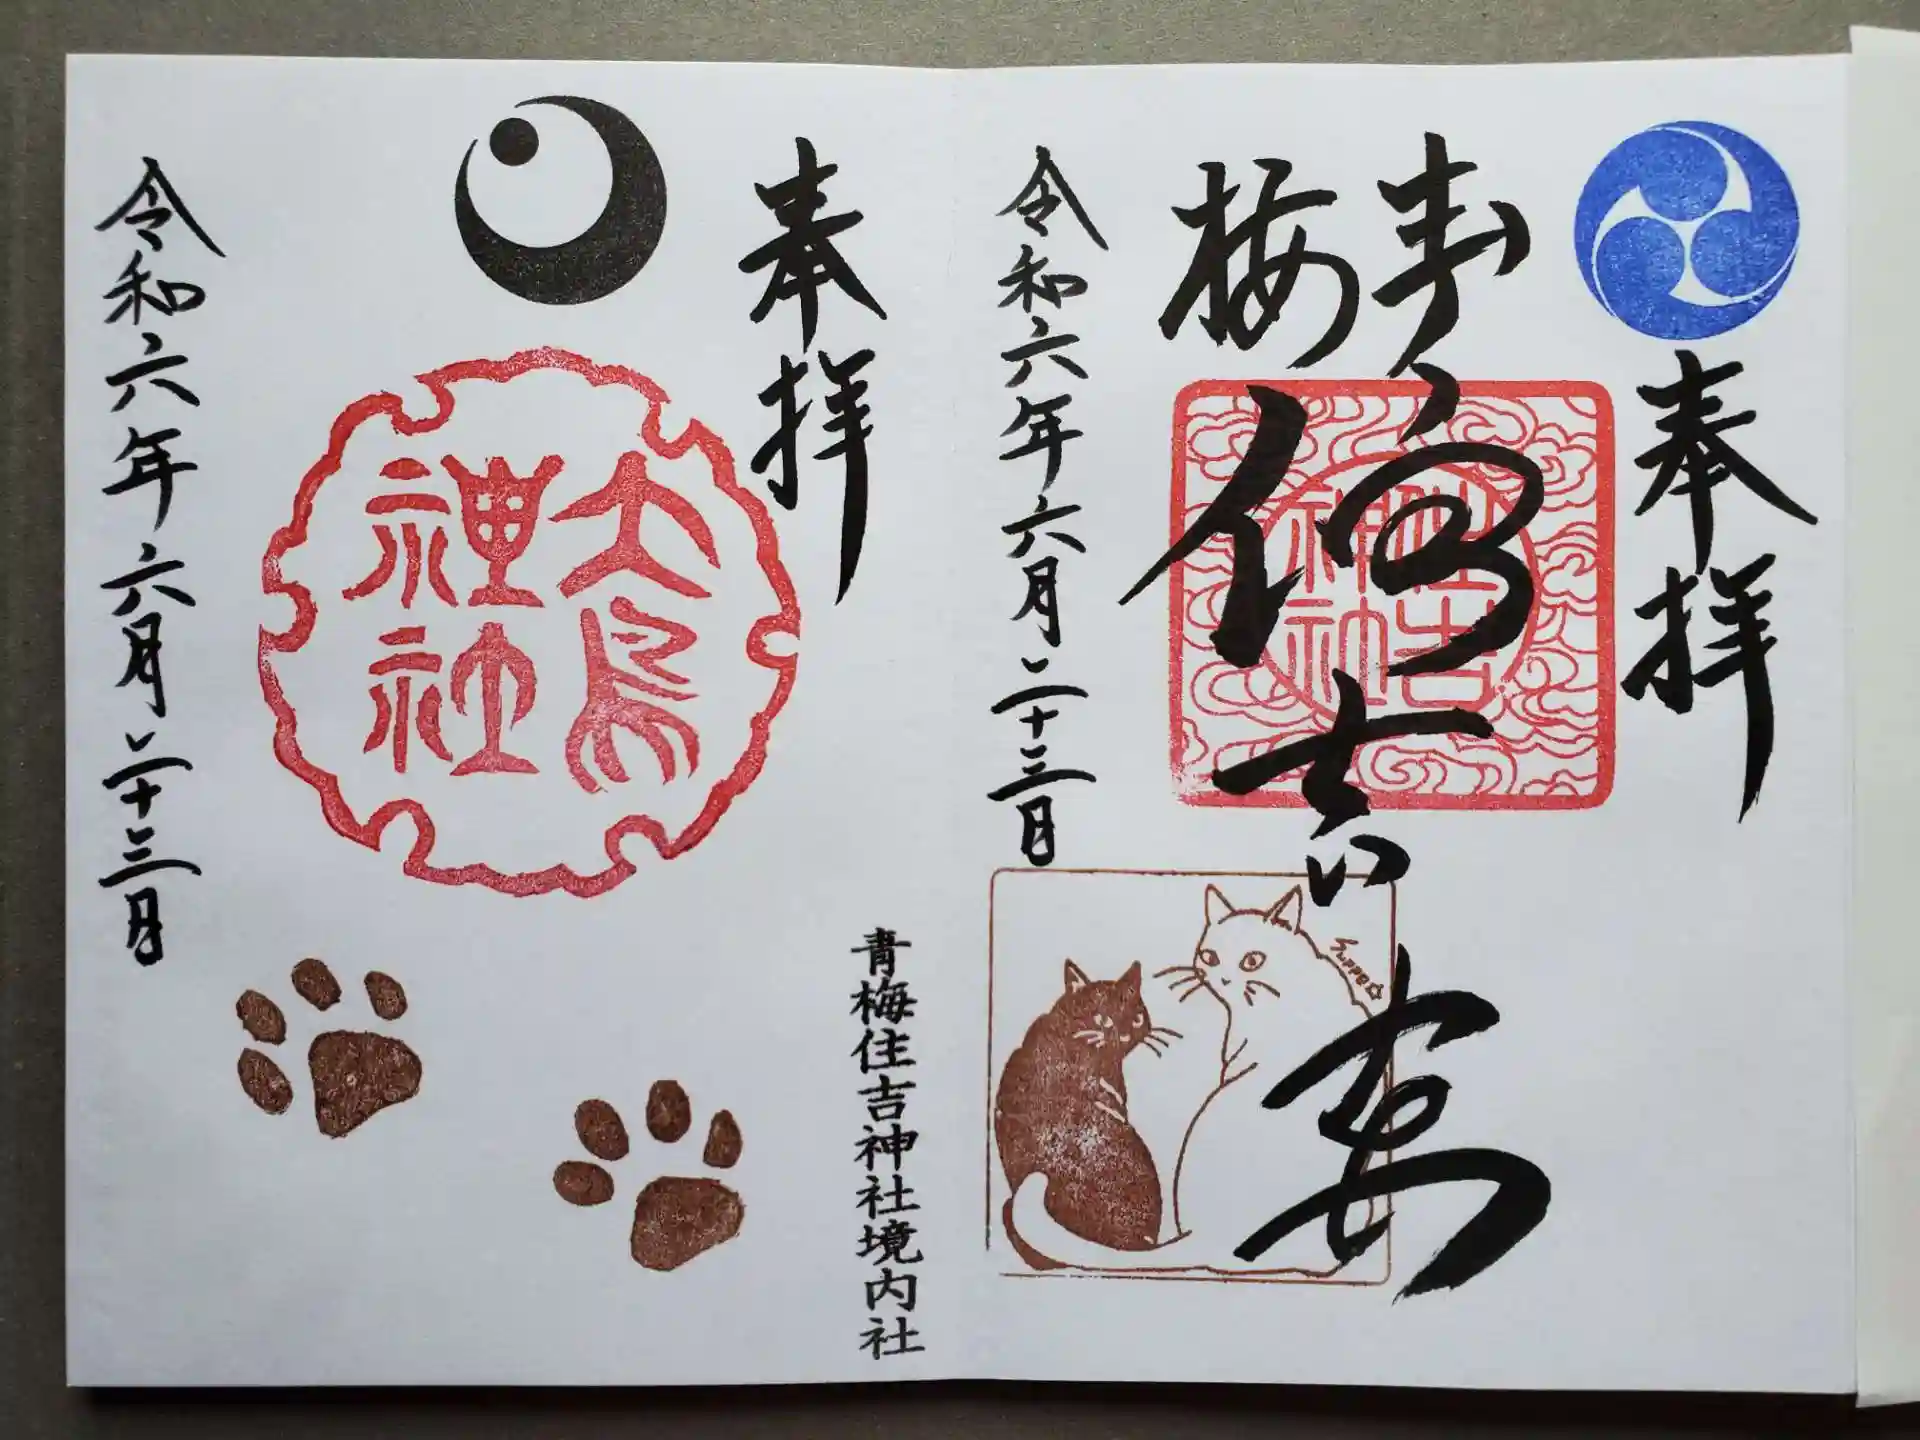 奉拝
青梅
住吉
住吉
神社
令和六年六月二十三日
青梅住吉神社境内社
奉拝
大鳥
神社
令和六年六月二十三日